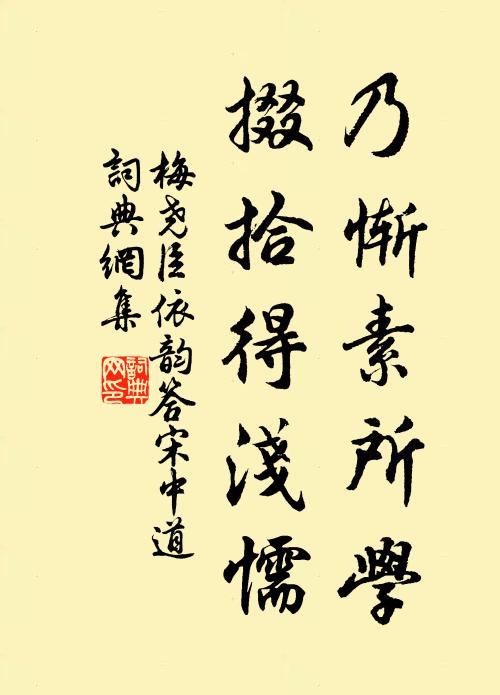 乃慚素所學
掇拾得淺懦
梅尧臣依韵答宋中道
詞典網集
詞典网印